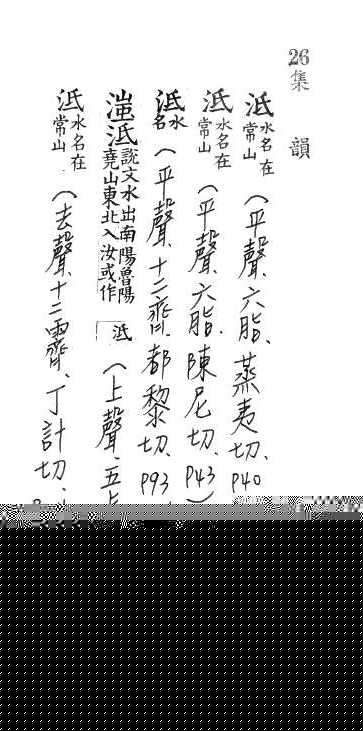 26
集韻
泜水名在常山(平聲、六脂、蒸夷切、P40
泜水名在常山(平聲、六脂、陳尼切、P43)
泜水名(平聲、十二齊、都黎切、P93
滍泜說文水出南陽魯陽堯山東北入汝或作泜(上聲、五
泜水名在常山(去聲、十二霽、丁計切、